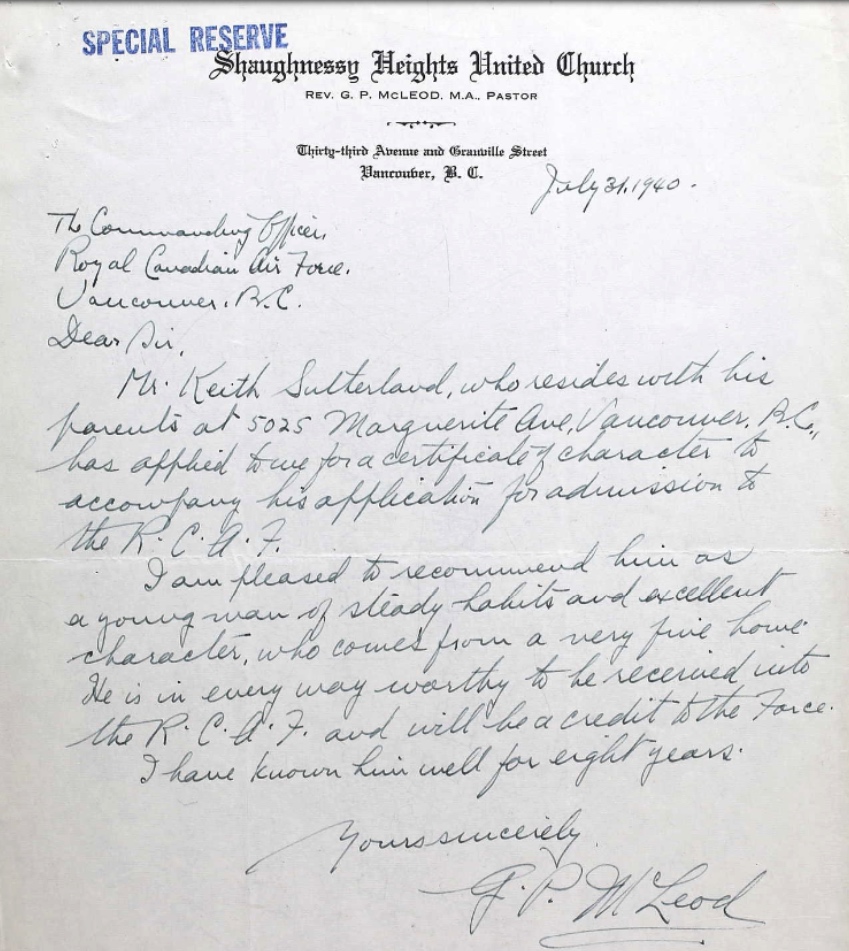 SPECIAL RESERVE
Shaughnessy Heights United Church
REV. G. P. McLEOD, M.A., PASTOR
Thirty-third Avenue and Granville Street
Vancouver, B. C.
July 31, 1940.
The Commanding Officer,
Royal Canadian Air Force.
Vancouver. B.C.
Dear Sir,
Mr. Keith Sutterland, who resides with his
parents at 5025 Marguerite Ave, Vancouver. B.C.,
has applied to me for a certificate of character to
accompany his application for admission to
the R.C.A.F.
I am pleased to recommend him as
a young man of steady habits and excellent
character, who comes from a very fine home.
He is in every way worthy to be received into
the R.C.A.F. and will be a credit to the Force.
I have known him well for eight years.
Yours sincerely
G. P. McLeod